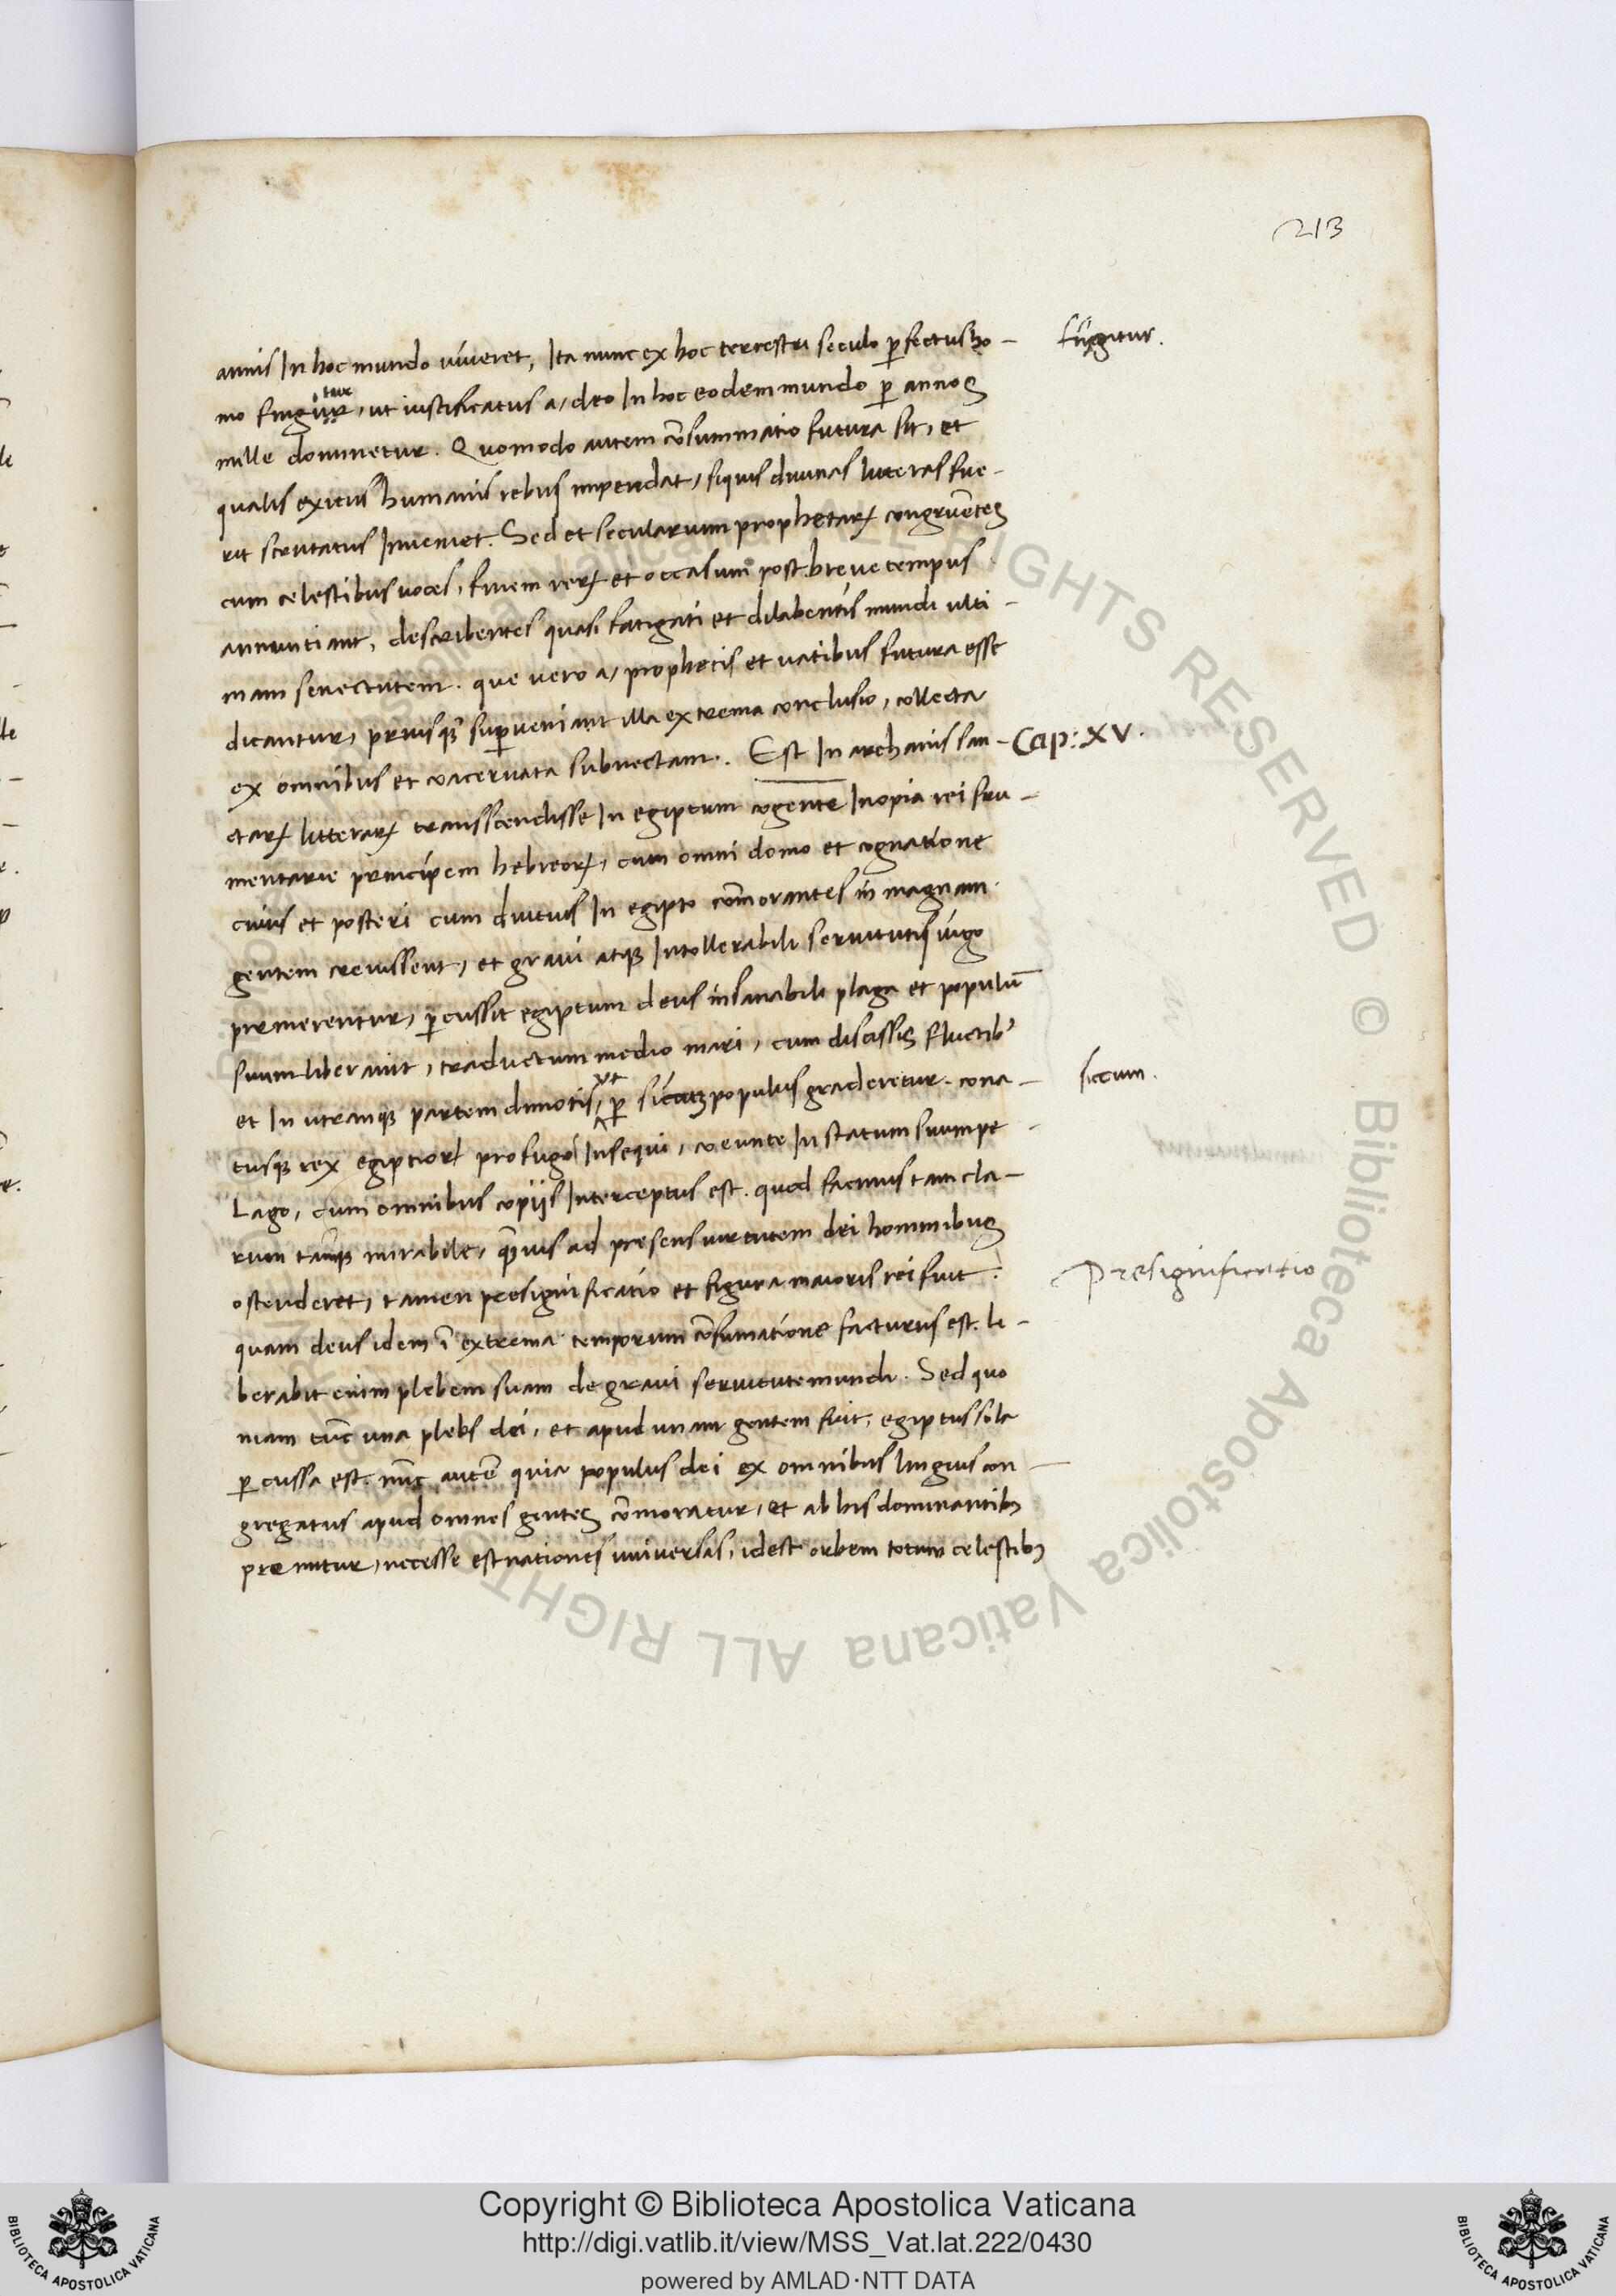 213
annis In hoc mundo viveret, Ita nunc ex hoc terrestri seculo ꝑfectus ho-
fingitur.
mo fingitur, ut iustificatus a, deo In hoc eodem mundo ꝑ annos
mille dominetur. Quomodo autem cōsummatio futura sit, et
qualis exitus humanis rebus impendat, siquis divinas litteras fue-
rit scrutatus Inveniet. Sed et secularium prophetaꝝ congruētes
cum celestibus voces, finem reꝝ et occasum post breve tempus
annuntiant, describentes quasi fatigati et dilabentis mundi ulti-
mam senectutem. que vero a, prophetis et vatibus futura esse
dicantur, priusq̄ suꝑveniant illa extrema conclusio, collecta
ex omnibus et coacervata subnectam. Est In archanis san-
Cap: XV.
ctaꝝ litteraꝝ transscendisse In egiptum cogente Inopia rei fru-
mentarie principem hebreoꝝ, cum omni domo et cognatione
cuius et posteri cum diutius In egipto cōmorantes in magnam
gentem crevissent, et gravi atqꝫ Intollerabili servitutis iugo
premerentur, ꝑcussit egiptum deus insanabili plaga et populū
suum liberavit, traductum medio mari, cum discissis fluctibꝰ
et In utranqꝫ partem dimotis, ut ꝑ siccum populus graderetur. cona-
siccum.
tusqꝫ rex egiptioꝝ profugos Insequi, coeunte In statum suum pe-
Lago, cum omnibus copijs Interceptus est. quod facinus tam cla-
rum tāqꝫ mirabile, quāvis ad presens virtutem dei hominibus
ostenderet, tamen presignificatio et figura maioris rei fuit.
Presignificatio
quam deus idem ī extrema temporum cōsumatione facturus est. li-
berabit enim plebem suam de gravi servitute mundi. Sed quo
niam tūc una plebs dei, et apud unam gentem fuit, egiptus sola
ꝑcussa est. nūc autē quia populus dei ex omnibus linguis con-
gregatus apud omnes gentes cōmoratur, et ab his dominantibꝫ
premitur, necesse est nationes universas, idest orbem totum celestibꝫ
Copyright © Biblioteca Apostolica Vaticana
http://digi.vatlib.it/view/MSS_Vat.lat.222/0430
powered by AMLAD·NTT DATA
BIBLIOTECA APOSTOLICA VATICANA
BIBLIOTECA APOSTOLICA VATICANA